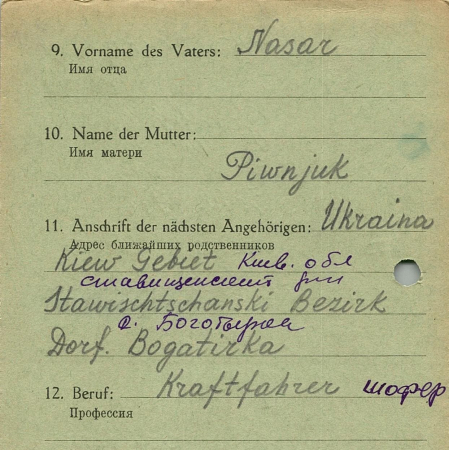 9. Vorname des Vaters: Nasar
Имя отца
10. Name der Mutter:
Имя матери
Piwnjuk
11. Anschrift der nächsten Angehörigen: Ukraina
Адрес ближайших родственников
Kiew Gebiet Киев. обл
Stawischtschanski Bezirk
с.
Dorf. Bogatirka
12. Beruf: Kraftfahrer шофер
Профессия